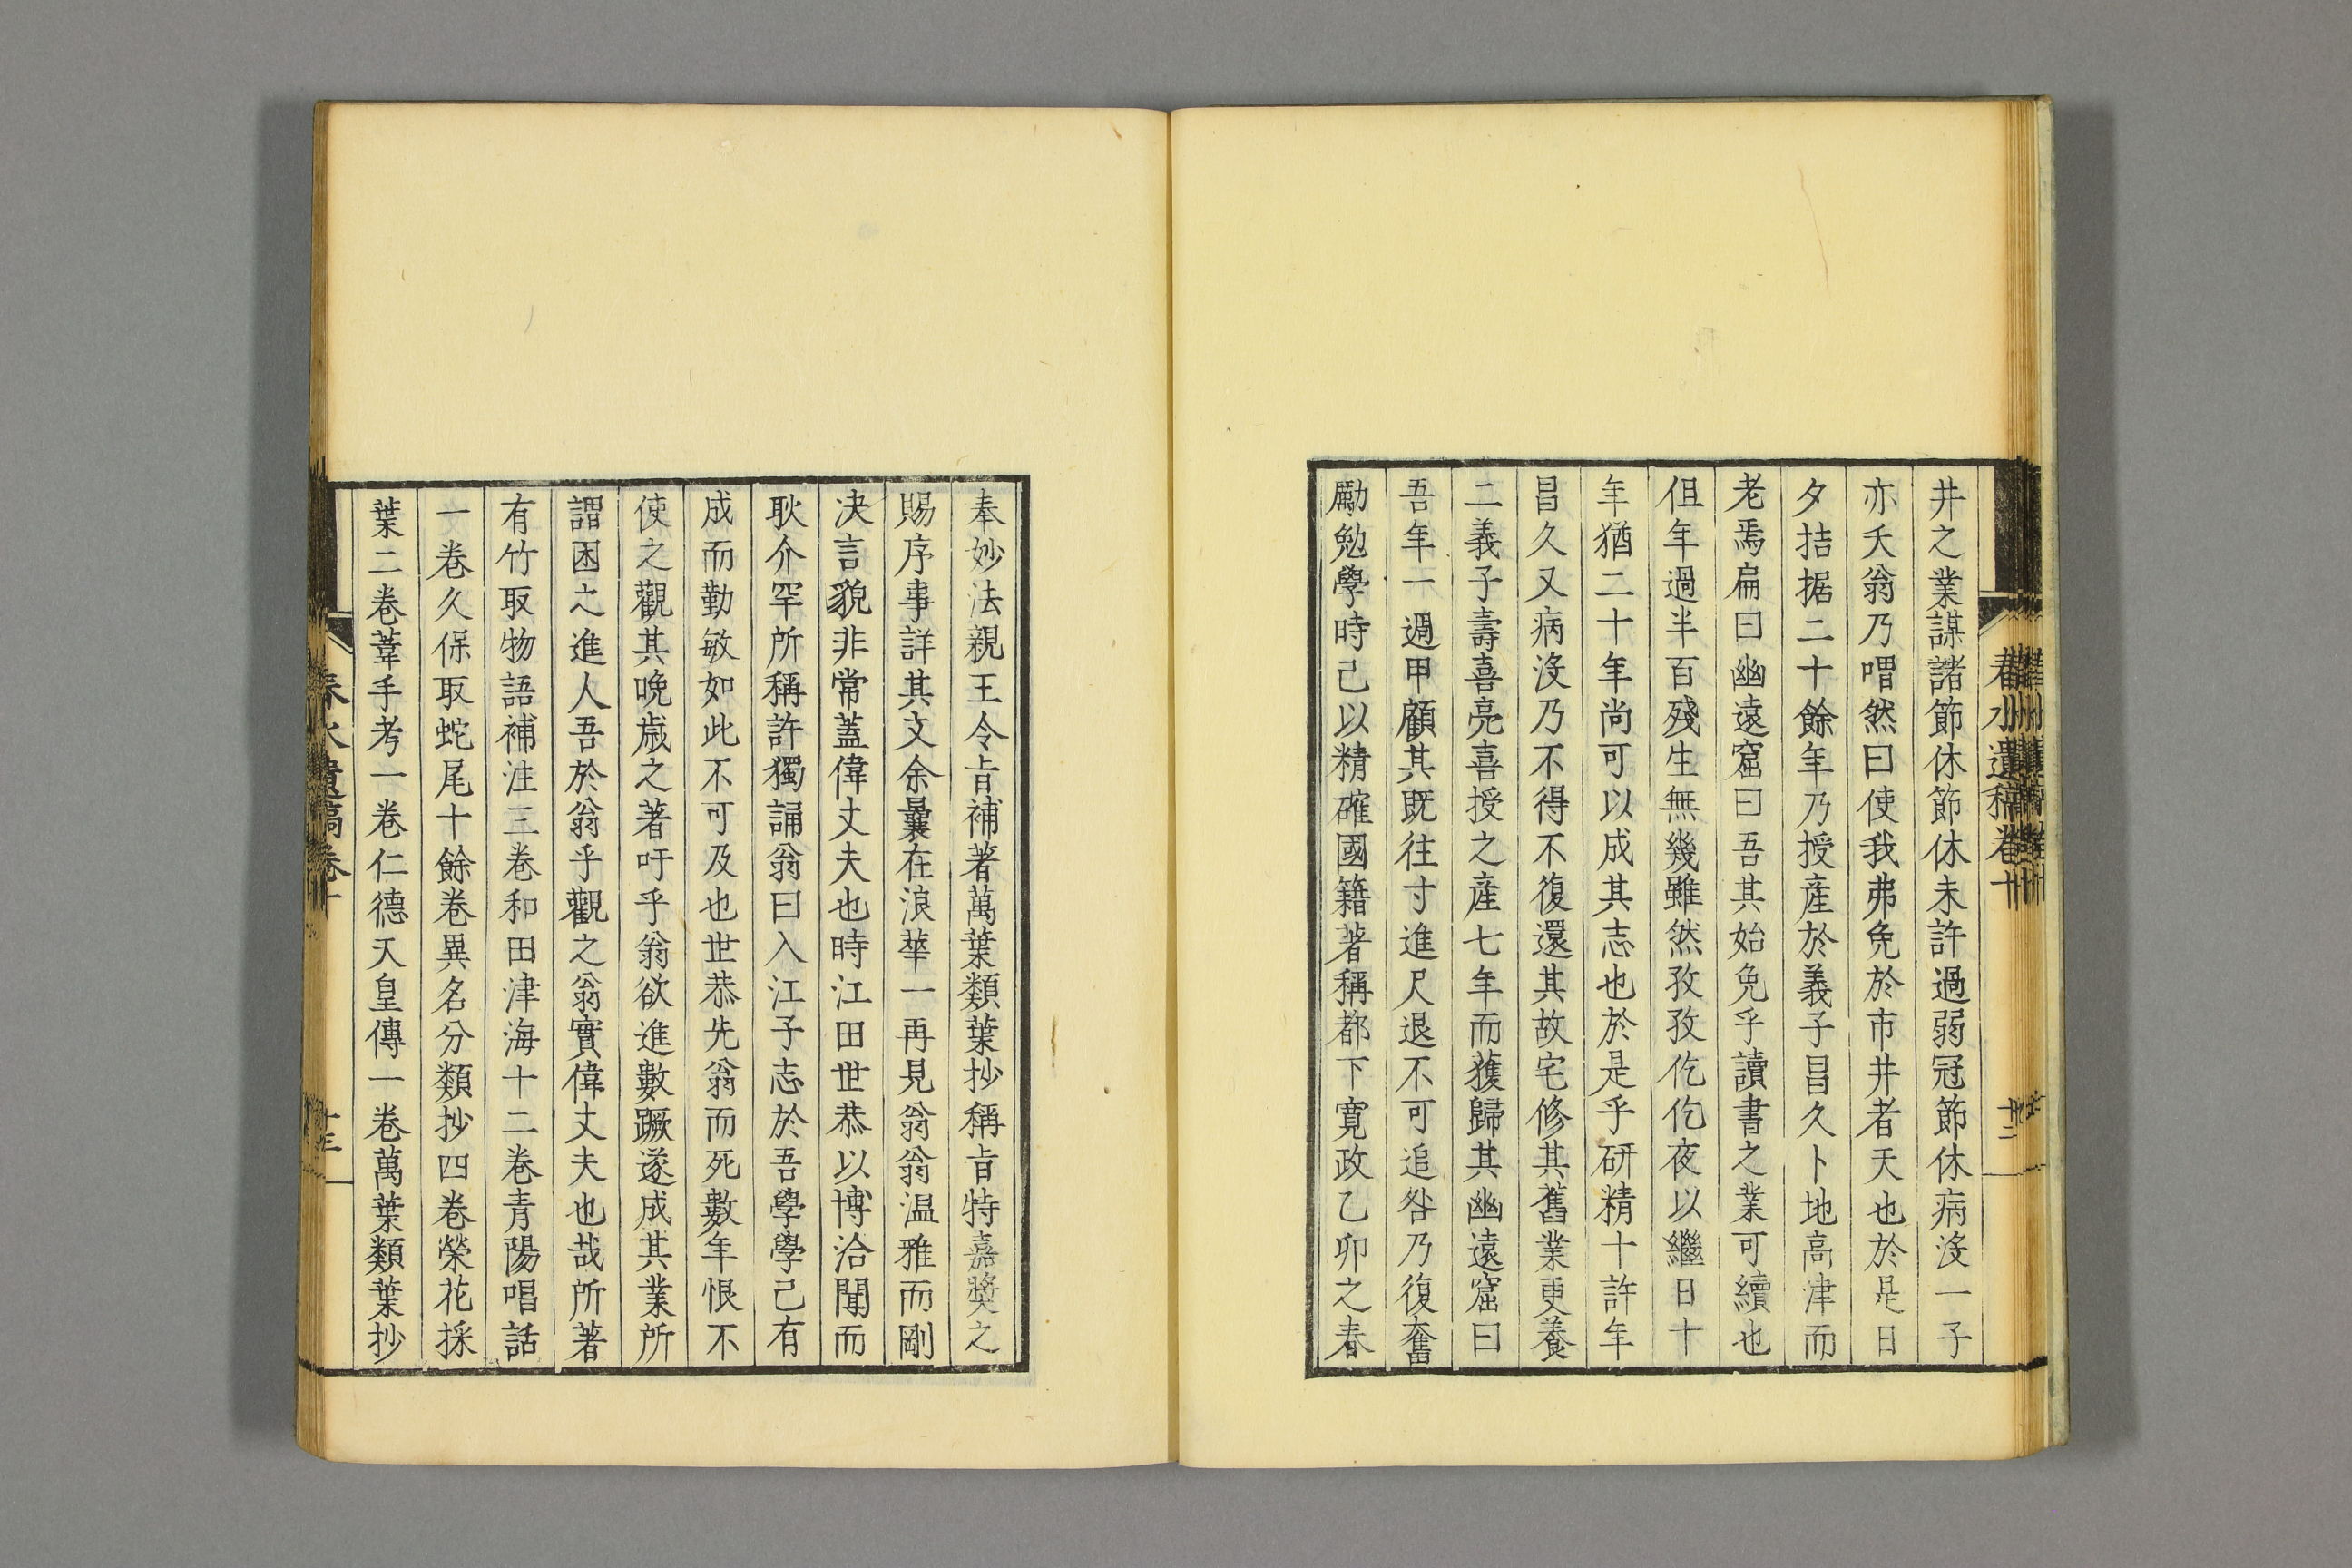 井之業謀諸節休節休未許過弱冠節休病沒一子
亦夭翁乃喟然曰使我弗免於市井者天也於是日
夕拮据二十餘年乃授産於義子昌久卜地高津而
老焉扁曰幽遠窟曰吾其始免乎讀書之業可續也
但年過半百殘生無幾雖然孜孜仡仡夜以繼日十
年猶二十年尚可以成其志也於是乎研精十許年
昌久又病沒乃不得不復還其故宅修其舊業更養
二義子壽喜亮喜授之産七年而獲歸其幽遠窟曰
吾年一週甲顧其既往寸進尺退不可追咎乃復奮
勵勉學時己以精確國籍著稱都下寛政乙卯之春
春水遺稿卷十
十二
奉妙法親王令旨補著萬葉類葉抄稱旨特嘉奬之
賜序事詳其文余曩在浪華一再見翁翁温雅而剛
决言貌非常蓋偉丈夫也時江田世恭以博洽聞而
耿介罕所稱許獨誦翁曰入江子志於吾學學己有
成而勤敏如此不可及也世恭先翁而死數年恨不
使之觀其晩歳之著吁乎翁欲進數蹶遂成其業所
謂困之進人吾於翁乎觀之翁實偉丈夫也哉所著
有竹取物語補注三卷和田津海十二卷青陽唱話
一卷久保取蛇尾十餘卷異名分類抄四卷榮花採
葉二卷葦手考一卷仁德天皇傳一卷萬葉類葉抄
春水遺稿卷十
十三